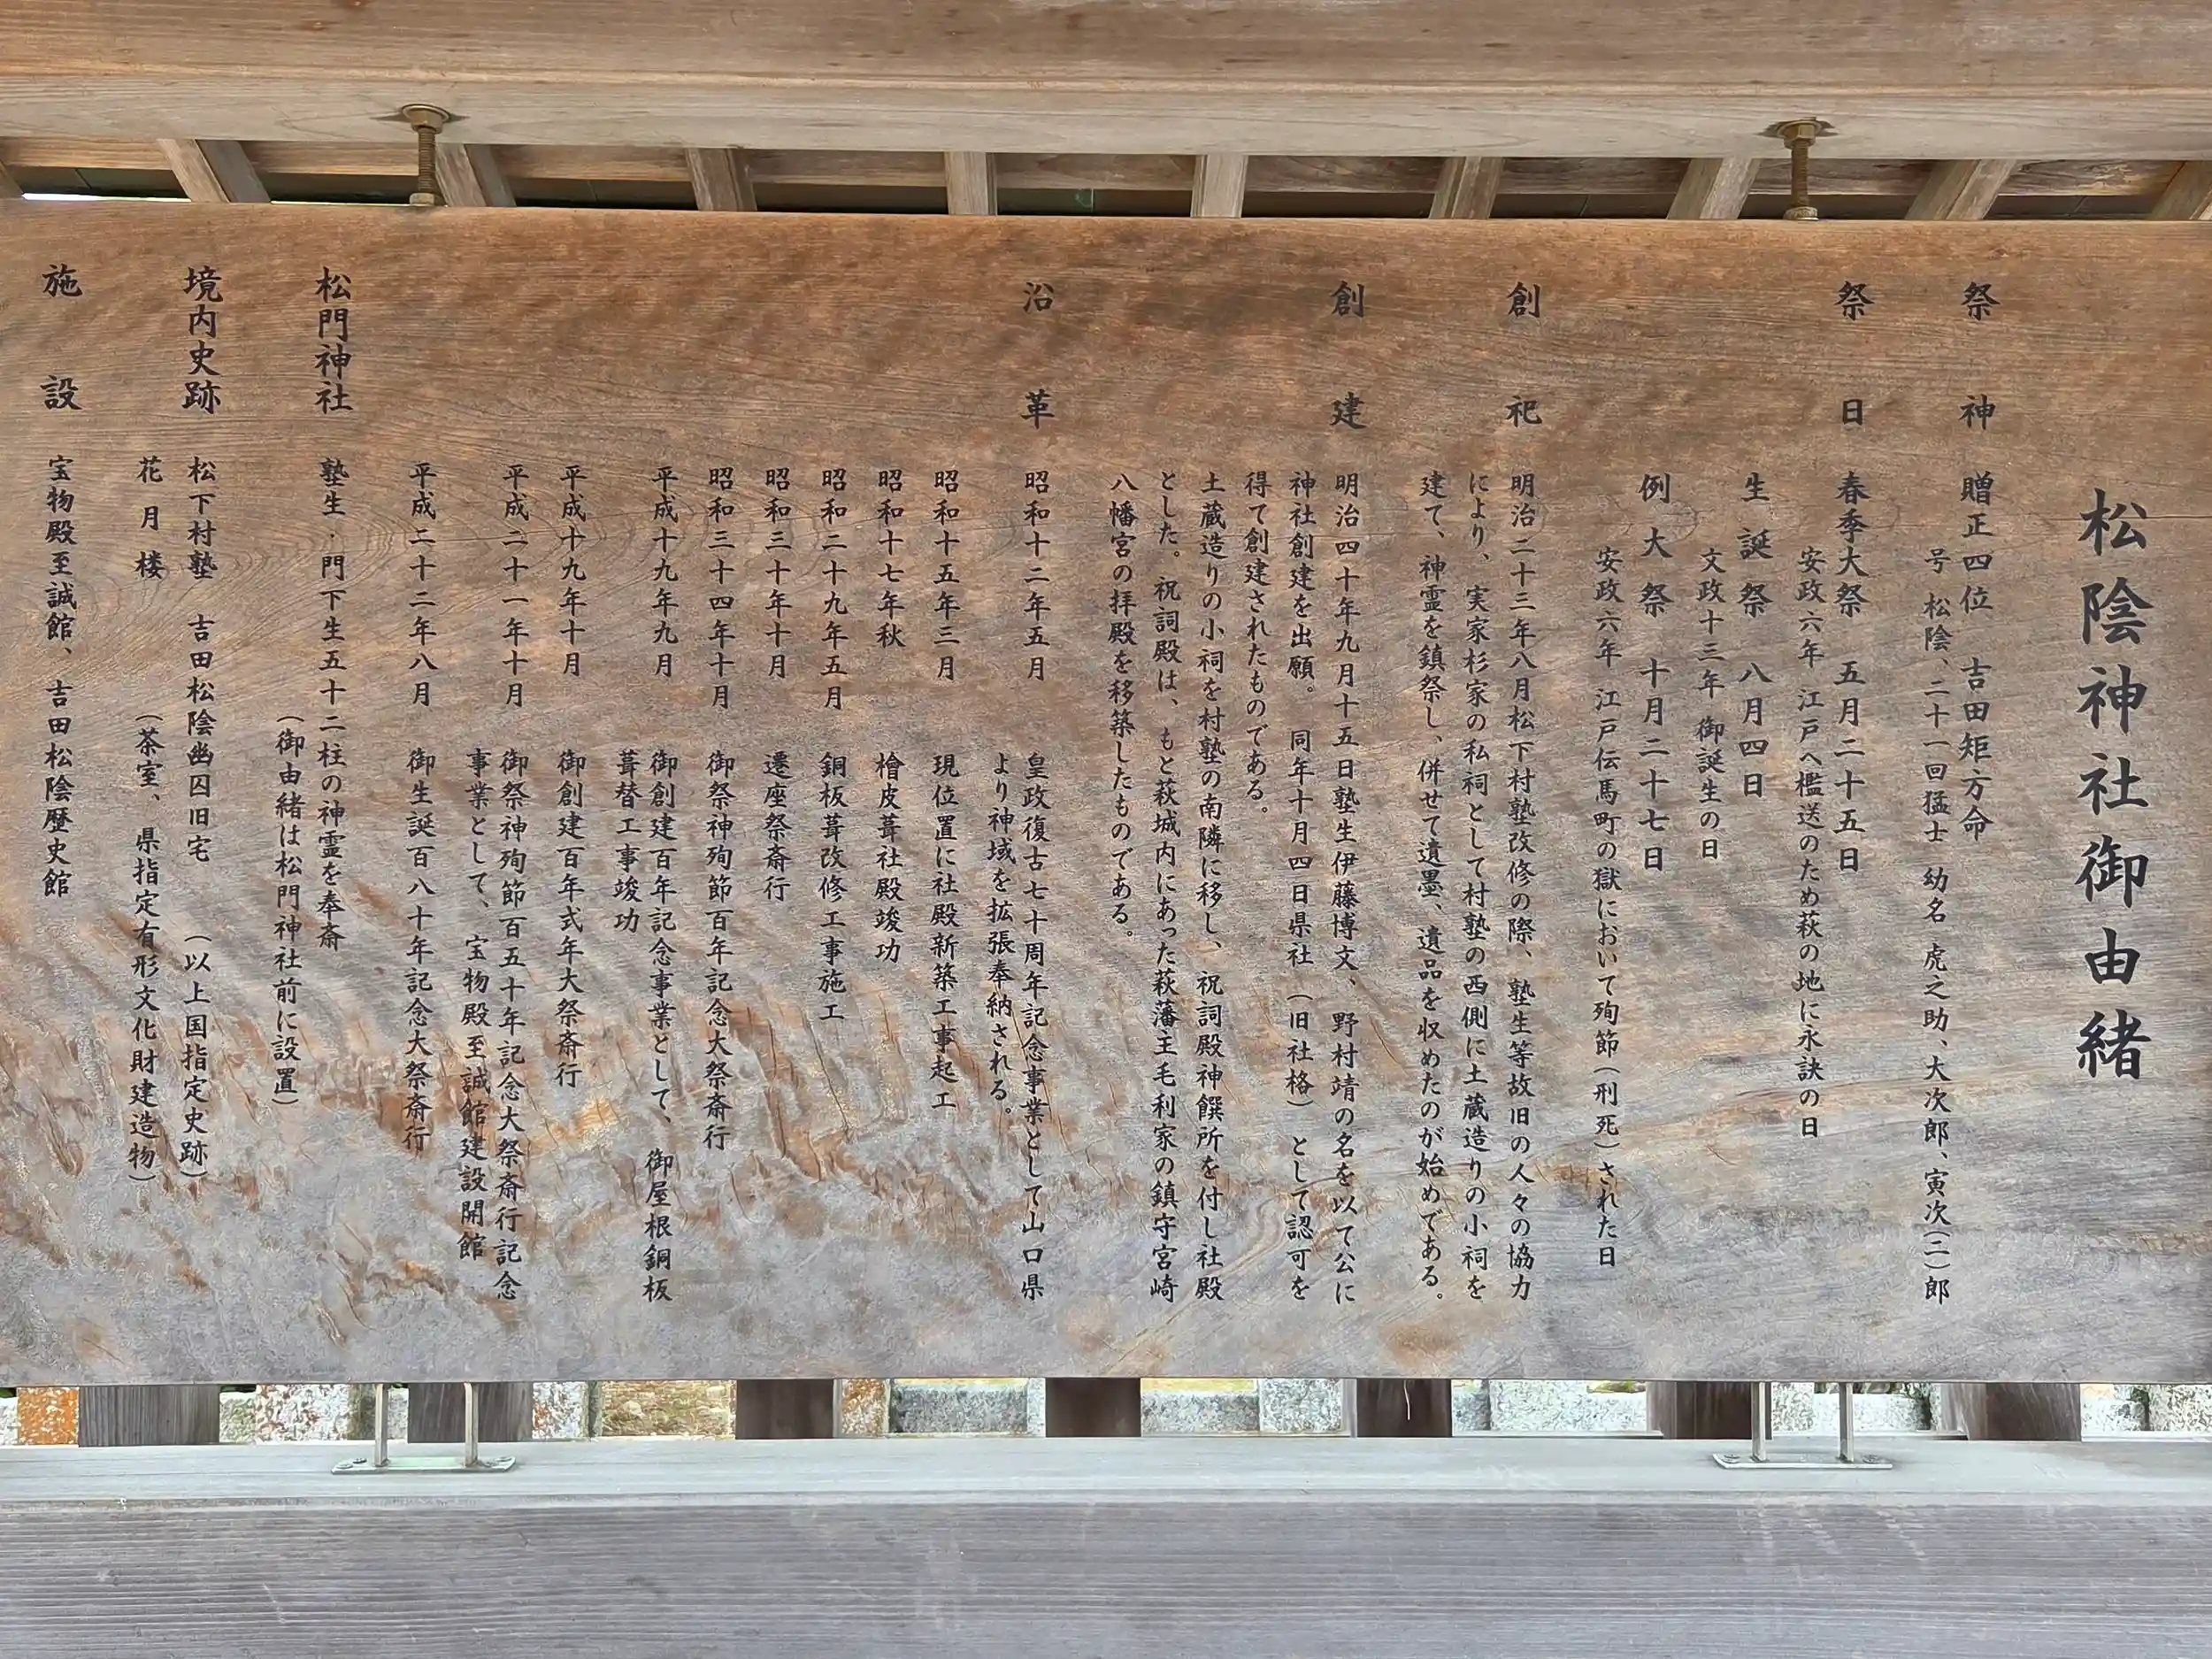 松陰神社御由緒
祭神 贈正四位 吉田矩方命
号 松陰、二十一回猛士 幼名 虎之助、大次郎、寅次(二)郎
祭日 春季大祭 五月二十五日
安政六年 江戸へ檻送のため萩の地に永訣の日
生誕祭 八月四日
文政十三年 御誕生の日
例大祭 十月二十七日
安政六年 江戸伝馬町の獄において殉節(刑死)された日
創祀 明治二十三年八月松下村塾改修の際、塾生等故旧の人々の協力
により、実家杉家の私祠として村塾の西側に土蔵造りの小祠を
建て、神霊を鎮祭し、併せて遺墨、遺品を収めたのが始めである。
創建 明治四十年九月十五日塾生伊藤博文、野村靖の名を以て公に
神社創建を出願。 同年十月四日県社(旧社格)として認可を
得て創建されたものである。
土蔵造りの小祠を村塾の南隣に移し、祝詞殿神饌所を付し社殿
とした。祝詞殿は、もと萩城内にあった萩藩主毛利家の鎮守宮崎
八幡宮の拝殿を移築したものである。
沿革 昭和十二年五月 皇政復古七十周年記念事業として山口県
より神域を拡張奉納される。
昭和十五年三月 現位置に社殿新築工事起工
昭和十七年秋 檜皮葺社殿竣功
昭和二十九年五月 銅板葺改修工事施工
昭和三十年十月 遷座祭斎行
昭和三十四年十月 御祭神殉節百年記念大祭斎行
平成十九年九月 御創建百年記念事業として、御屋根銅板
葺替工事竣功
平成十九年十月 御創建百年式年大祭斎行
平成二十一年十月 御祭神殉節百五十年記念大祭斎行記念
事業として、宝物殿至誠館建設開館
平成二十二年八月 御生誕百八十年記念大祭斎行
松門神社 塾生・門下生五十二柱の神霊を奉斎
(御由緒は松門神社前に設置)
境内史跡 松下村塾 吉田松陰幽囚旧宅 (以上国指定史跡)
花月楼 (茶室、県指定有形文化財建造物)
施設 宝物殿至誠館、吉田松陰歴史館